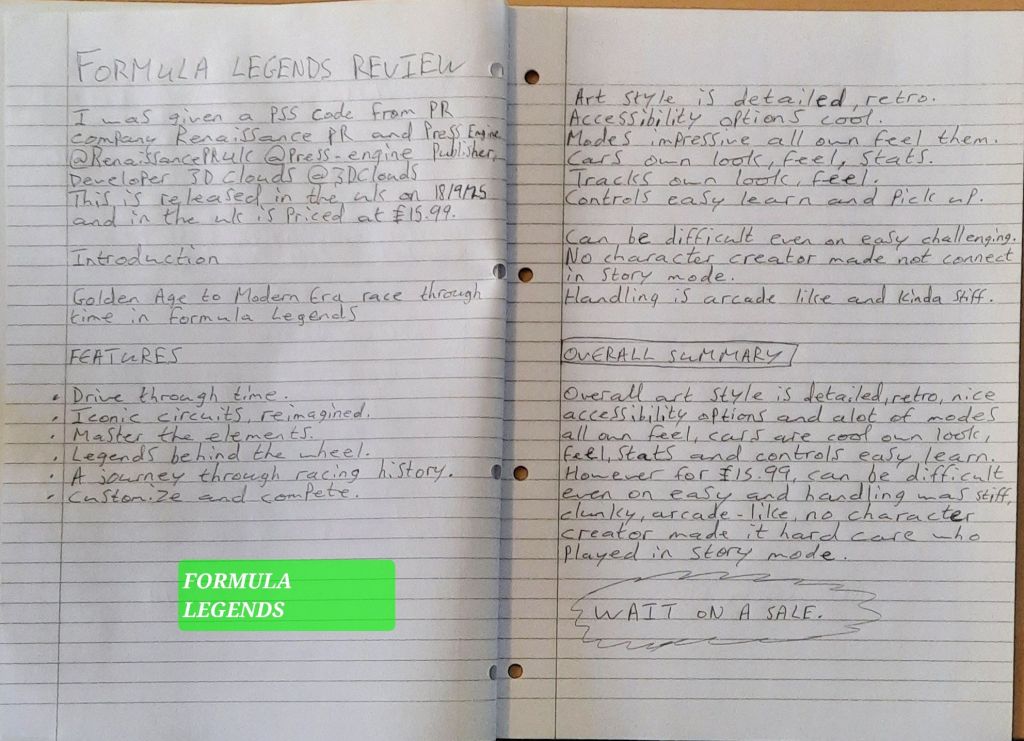 FORMULA LEGENDS REVIEW
I was given a PS5 code from PR
company Renaissance PR and Press Engine
@RenaissancePRuk @Press-engine Publisher,
Developer 3D Clouds @3DClouds
This is released in the uk on 18/9/25
and in the uk is Priced at £15.99.
Introduction
Golden Age to Modern Era race through
time in formula Legends
FEATURES
• Drive through time.
• Iconic circuits, reimagined.
• Master the elements.
• Legends behind the wheel.
• A journey through racing history.
• Customize and compete.
FORMULA
LEGENDS
Art style is detailed, retro.
Accessibility options cool.
Modes impressive all own feel them.
Cars own look, feel, stats.
Tracks own look, feel.
Controls easy learn and Pick up.
Can be difficult even on easy challenging.
No character creator made not connect
in story mode.
Handling is arcade like and kinda stiff.
OVERALL SUMMARY
Overall art style is detailed, retro, nice
accessibility options and alot of modes
all own feel, cars are cool own look,
feel, stats and controls easy learn.
However for £15.99, can be difficult
even on easy and handling was stiff,
clunky, arcade-like, no character
creator made it hard care who
Played in story mode.
WAIT ON A SALE.